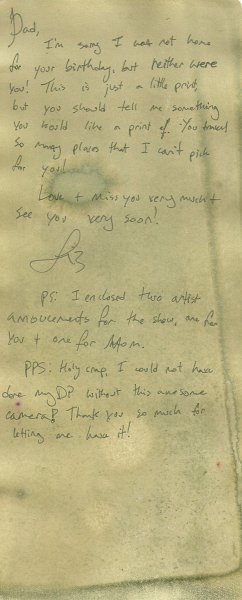 Dad,
I'm sorry I was not home
for your birthday, but neither were
you! This is just a little print,
but you should tell me something
you would like a print of. You travel
so many places that I can't pick
for you!
Love + miss you very much +
see you very soon!
PS: I enclosed two artist
anouncements for the show, one for
you + one for Mom.
PPS: Holy crap, I could not have
done my DP without this awesome
camera! Thank you so much for
letting me have it!